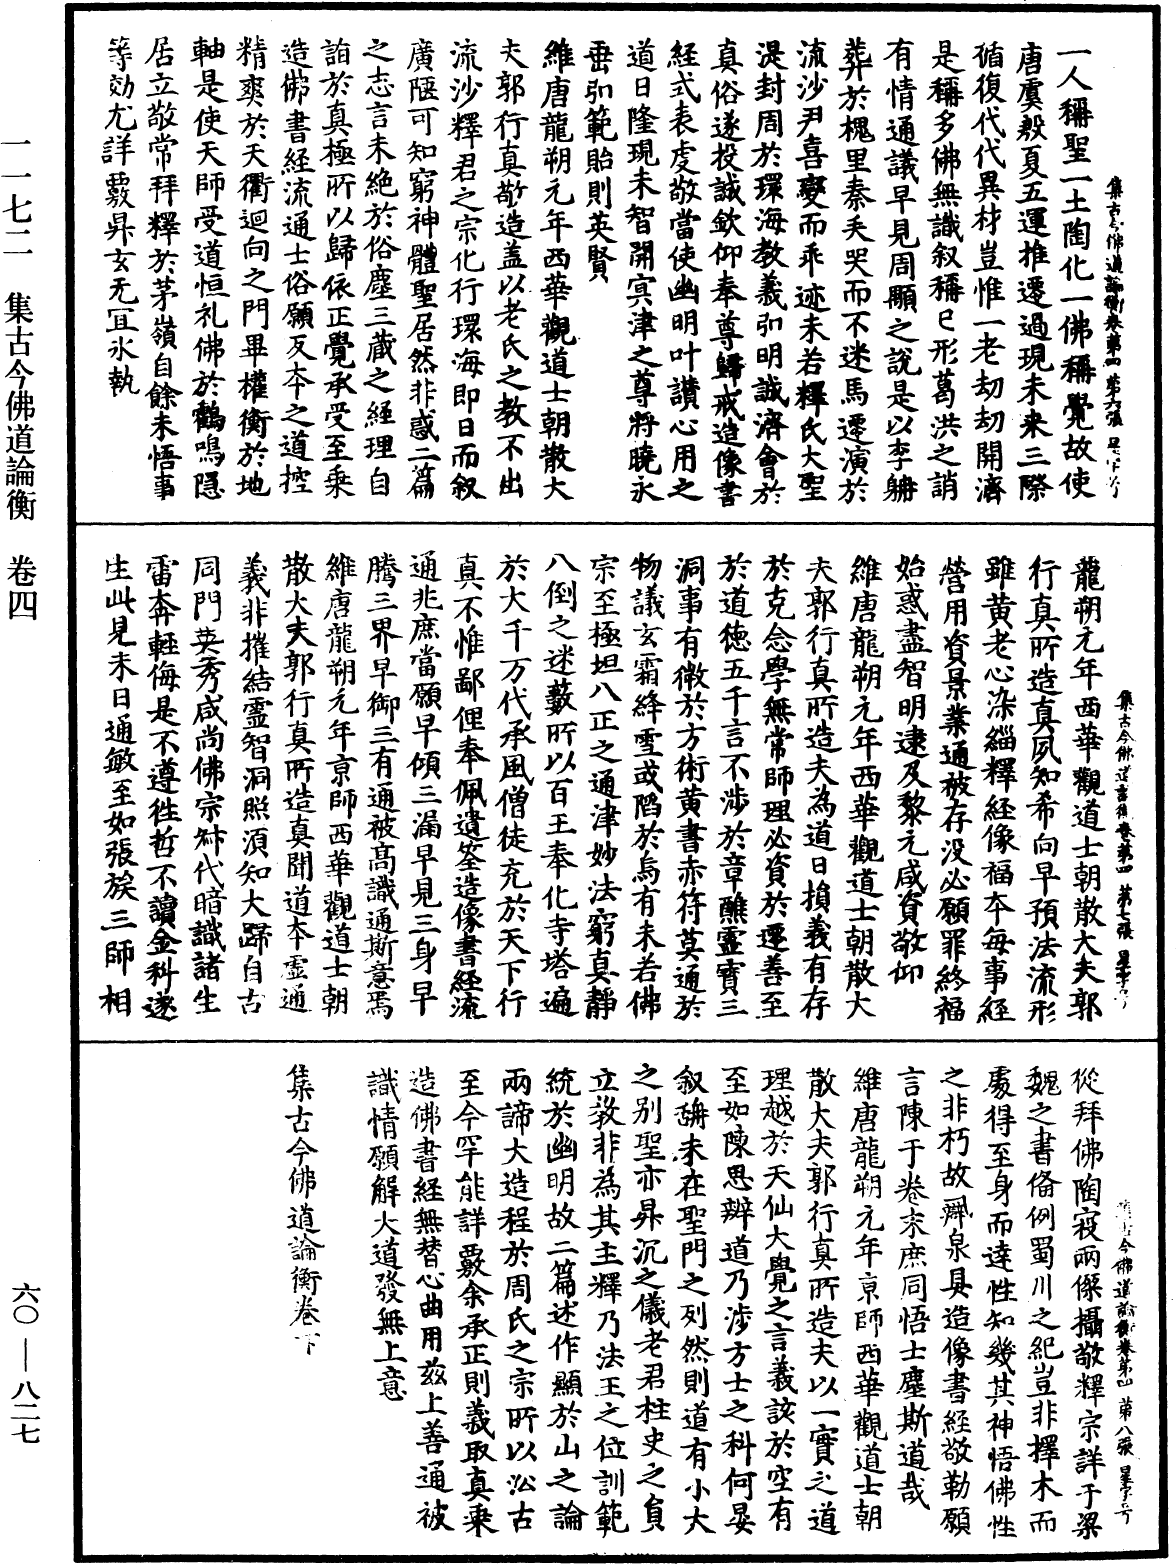 一一七二　集古今佛道論衡　卷四
六〇—八二七
集古今佛道論衡卷第四　第六張
一人稱聖一土陶化一佛稱覺故使
唐虞殷夏五運推遷過現未来三際
循復代代異材豈惟一老劫劫開濟
是稱多佛無識叙稱已形葛洪之誚
有情通議早見周顒之說是以李聃
葬於槐里秦失哭而不迷馬遷演於
流沙尹喜變而乖迹未若釋氏大聖
湜封周於環海教義弘明誠濟會於
真俗遂投誠欽仰奉尊歸戒造像書
経式表虔敬當使幽明叶讚心用之
道日隆現未智開冥津之尊將曉永
垂弘範貽則英賢
維唐龍朔元年西華觀道士朝散大
夫郭行真敬造蓋以老氏之教不出
流沙釋君之宗化行環海即日而叙
廣陿可知窮神體聖居然非惑二篇
之志言未絶於俗塵三藏之経理自
詣於真極所以歸依正覺承受至乘
造佛書経流通士俗願反本之道控
精爽於天衢迴向之門畢權衡於地
軸是使天師受道恒礼佛於鶴鳴隱
居立敬常拜釋於茅嶺自餘未悟事
等効尤詳覈昇玄无冝氷執
集古今佛道論衡卷第四　第七張
龍朔元年西華觀道士朝散大夫郭
行真所造真夙知希向早預法流形
雖黄老心染緇釋経像福本每事経
營用資景業通被存没必願罪終福
始惑盡智明逮及黎元咸資敬仰
維唐龍朔元年西華觀道士朝散大
夫郭行真所造夫為道日損義有存
於克念學無常師理必資於遷善至
於道德五千言不涉於章醮靈寶三
洞事有徵於方術黄書赤符莫通於
物議玄霜絳雪或陷於烏有未若佛
宗至極坦八正之通津妙法窮真靜
八倒之迷藪所以百王奉化寺塔遍
於大千万代承風僧徒充於天下行
真不惟鄙俚奉佩遺筌造像書経流
通兆庶當願早傾三漏早見三身早
騰三界早御三有通被高識通斯意焉
維唐龍朔元年京師西華觀道士朝
散大夫郭行真所造真聞道本虛通
義非摧結靈智洞照須知大歸自古
同門英秀咸尚佛宗叔代暗識諸生
雷奔輕侮是不遵往哲不讀金科遂
生此見未日通敏至如張族三師相
集古今佛道論衡卷第四　第八張
從拜佛陶寇兩傑攝敬釋宗詳于梁
魏之書俻例蜀川之紀豈非擇木而
處得至身而達性知幾其神悟佛性
之非朽故罄泉具造像書経敬勒願
言陳于卷末庶同悟士塵斯道哉
維唐龍朔元年京師西華觀道士朝
散大夫郭行真所造夫以一實之道
理越於天仙大覺之言義該於空有
至如陳思辯道乃涉方士之科何晏
叙聃未在聖門之列然則道有小大
之别聖亦昇沉之儀老君柱史之貟
立教非為其主釋乃法王之位訓範
統於幽明故二篇述作顯於山之論
兩諦大造程於周氏之宗所以訟古
至今罕能詳覈余承正則義取真乘
造佛書経無替心曲用兹上善通被
識情願解大道發無上意
集古今佛道論衡卷下